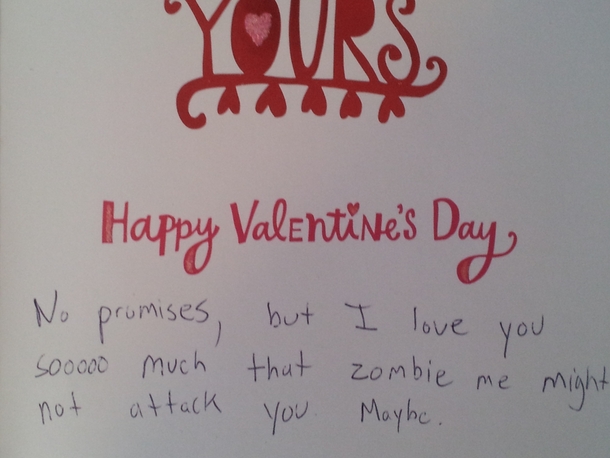 YOURS
Happy Valentine's Day
No promises, but I love you
sooooo much that zombie me might
not attack you. Maybe.